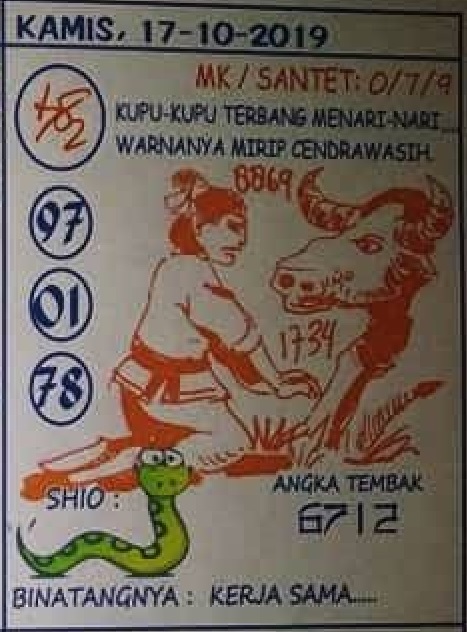 KAMIS, 17-10-2019
MK / SANTET: 0/7/9
KUPU-KUPU TERBANG MENARI-NARI....
WARNANYA MIRIP CENDRAWASIH.
8869
97
01
1734
78
SHIO :
ANGKA TEMBAK
6712
BINATANGNYA : KERJA SAMA.....